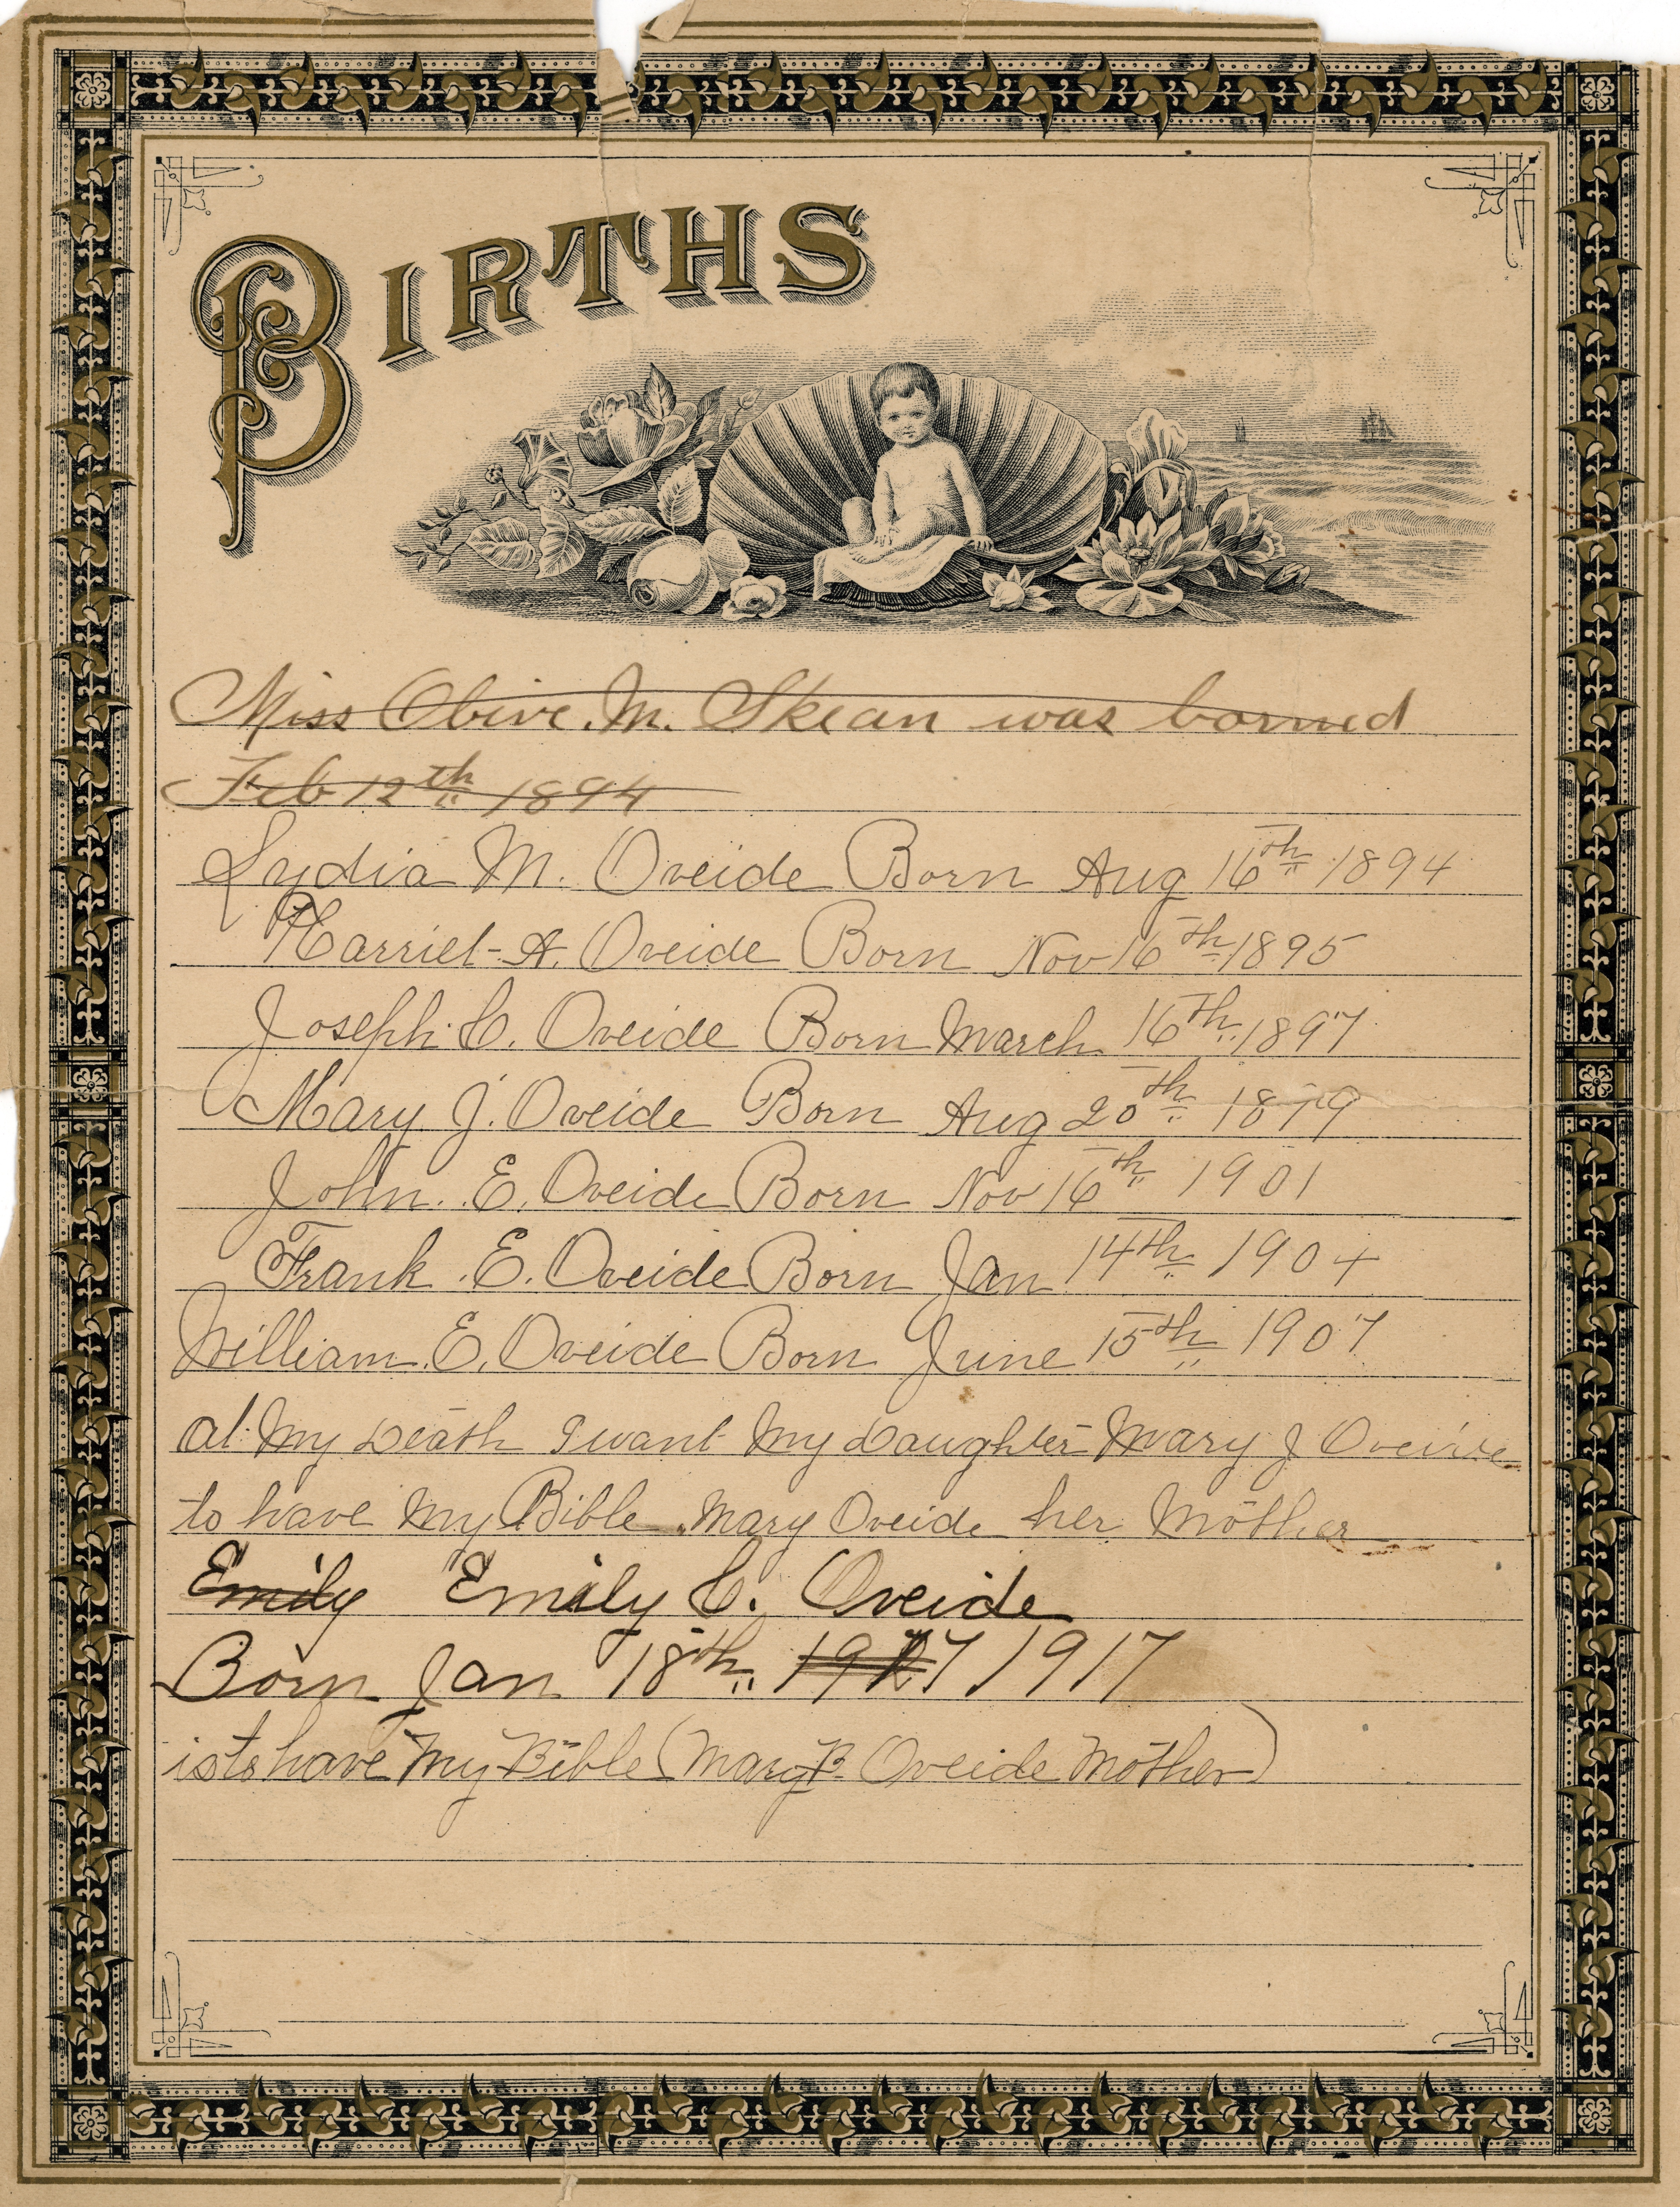 BIRTHS
Miss Olive. M. Skean was borned
Feb 12th 1894
Lydia M. Oveide Born Aug 16th 1894
Harriet A. Oveide Born Nov 16th 1895
Joseph C. Oveide Born March 16th 1897
Mary J. Oveide Born Aug 20th 1879
John. E. Oveide Born Nov 16th 1901
Frank. E. Oveide Born Jan 14th 1904
William. E. Oveide Born June 15th 1907
at My Death I want My Daughter Mary J Oveide
to have My Bible. Mary Oveide her Mother
Emily Emily C. Oveide
Born Jan 18th 1927 1917
is to have My Bible (Mary B Oveide Mother)